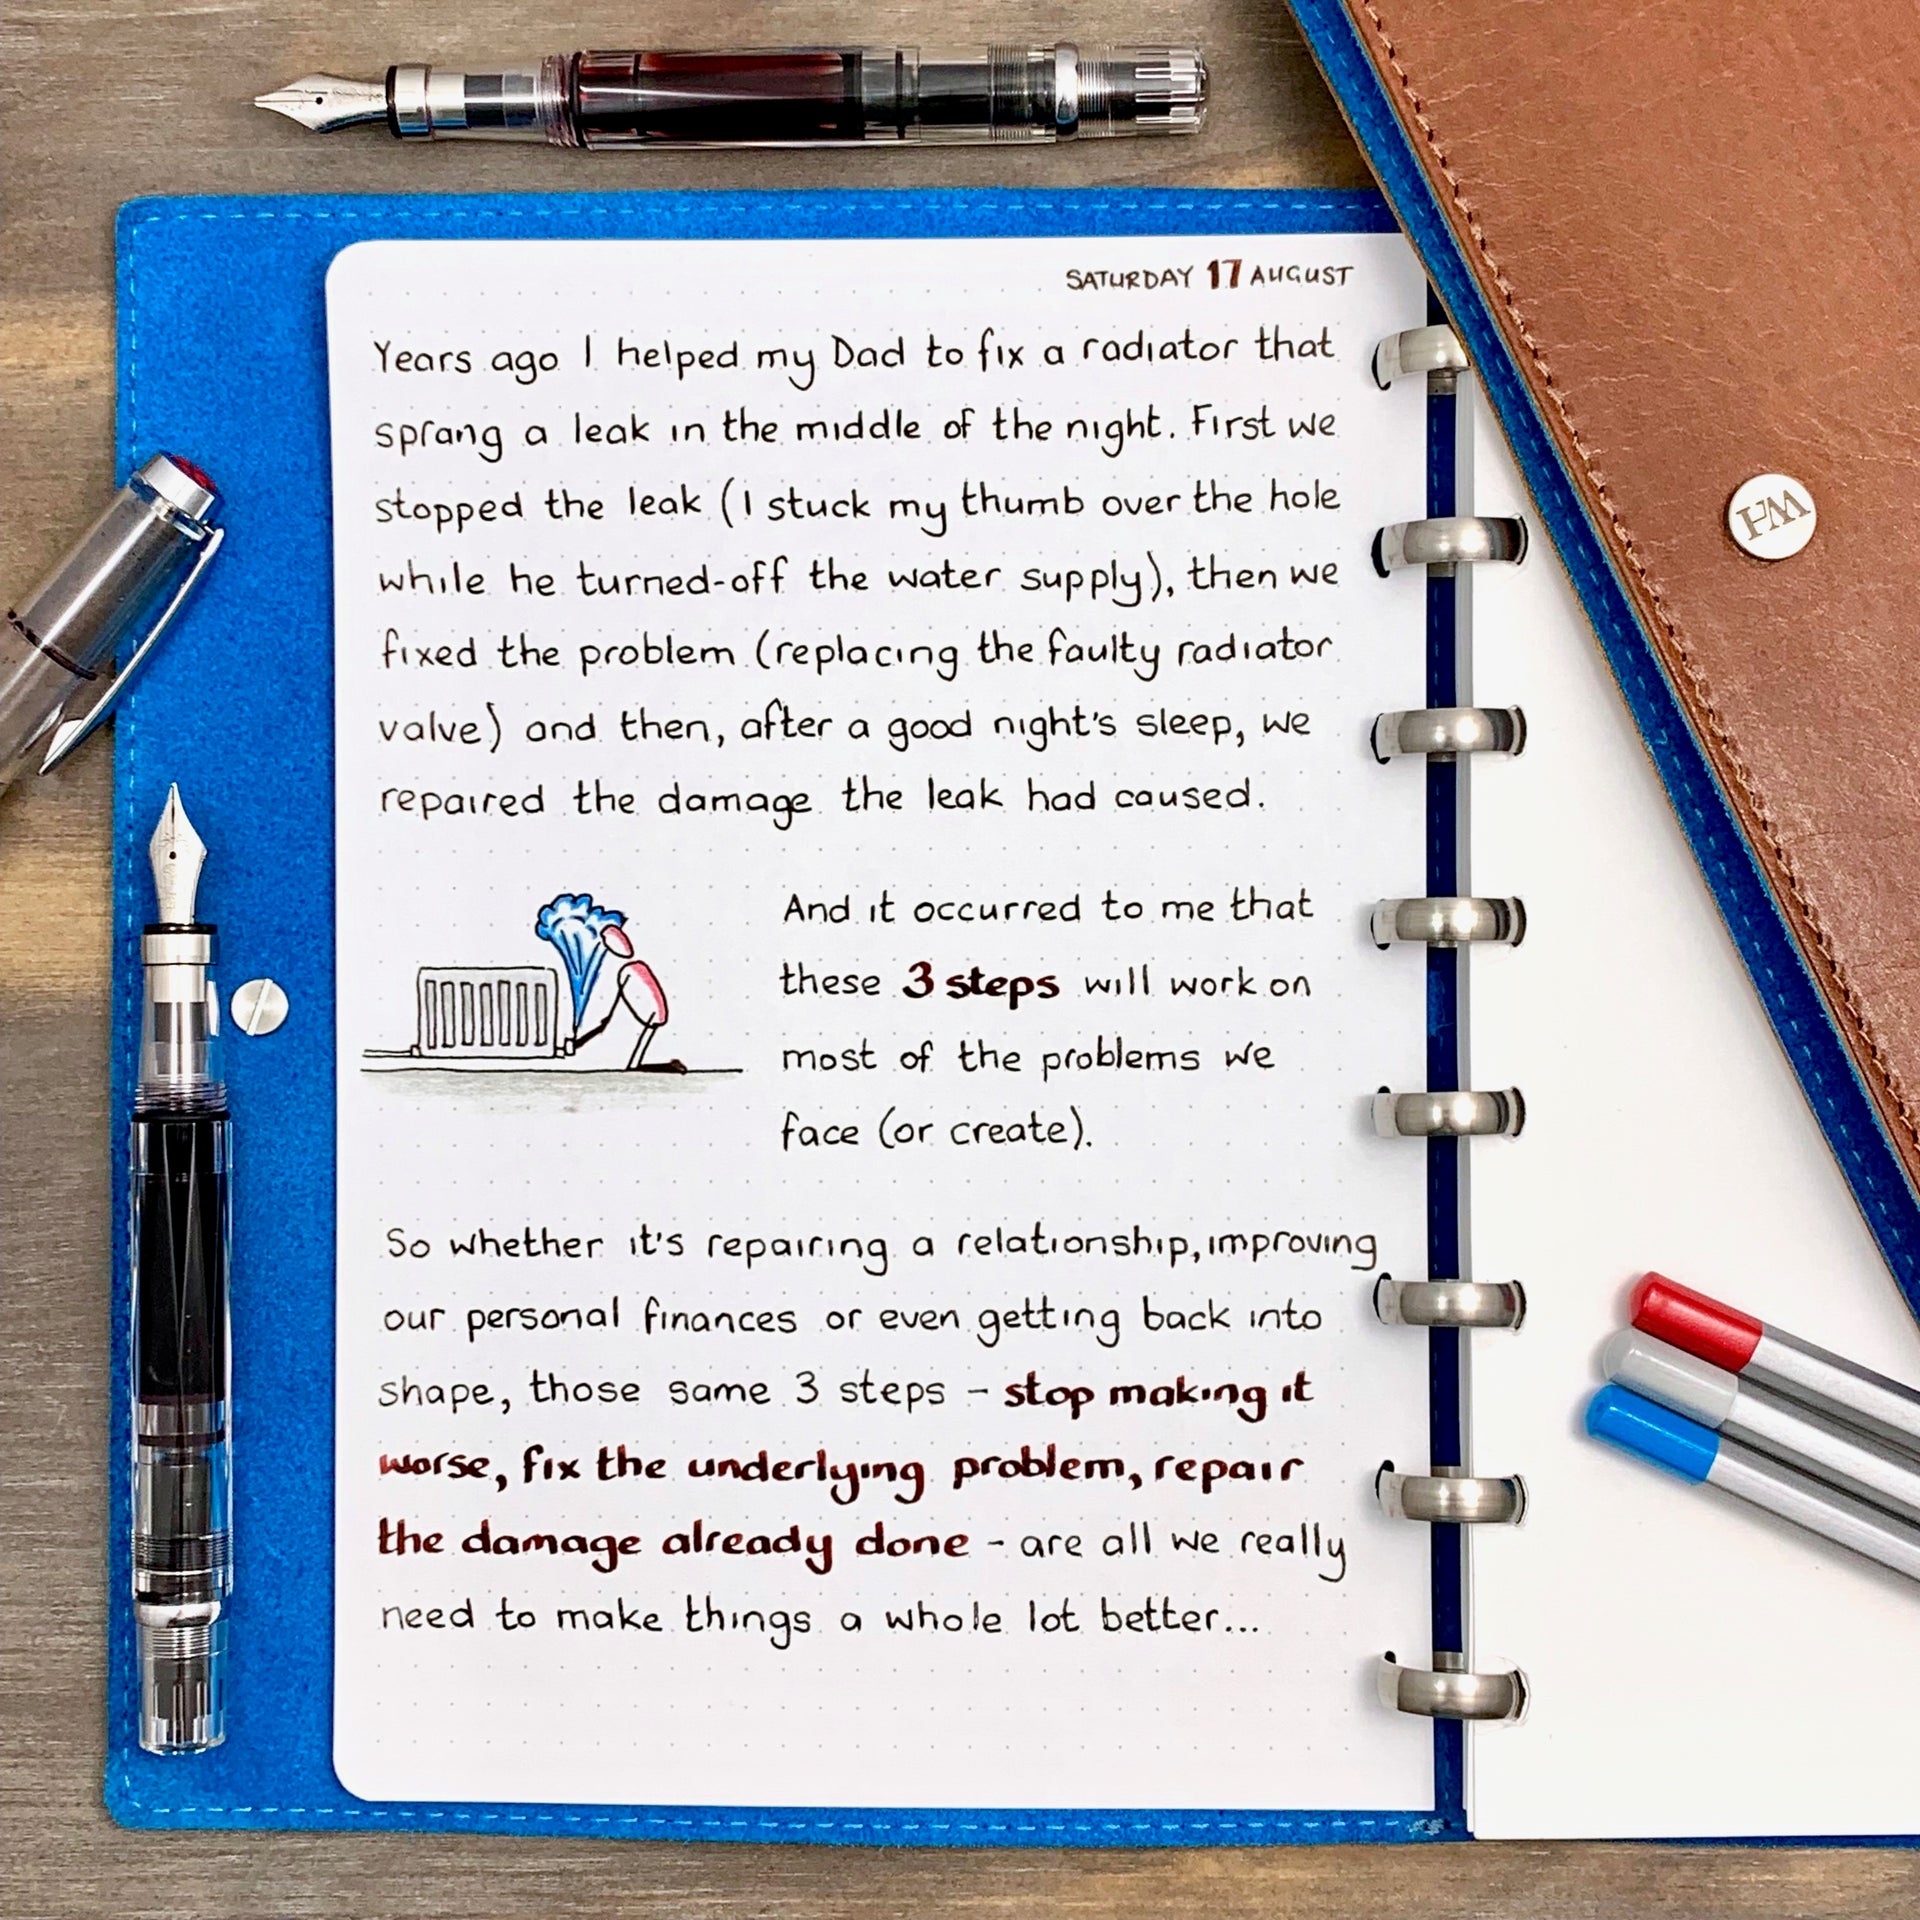 SATURDAY 17 AUGUST
Years ago I helped my Dad to fix a radiator that
sprang a leak in the middle of the night. First we
stopped the leak (I stuck my thumb over the hole
while he turned-off the water supply), then we
fixed the problem (replacing the faulty radiator
valve) and then, after a good night's sleep, we
repaired the damage the leak had caused.
And it occurred to me that
these 3 steps will work on
most of the problems we
face (or create).
So whether it's repairing a relationship, improving
our personal finances or even getting back into
shape, those same 3 steps - stop making it
worse, fix the underlying problem, repair
the damage already done - are all we really
need to make things a whole lot better...